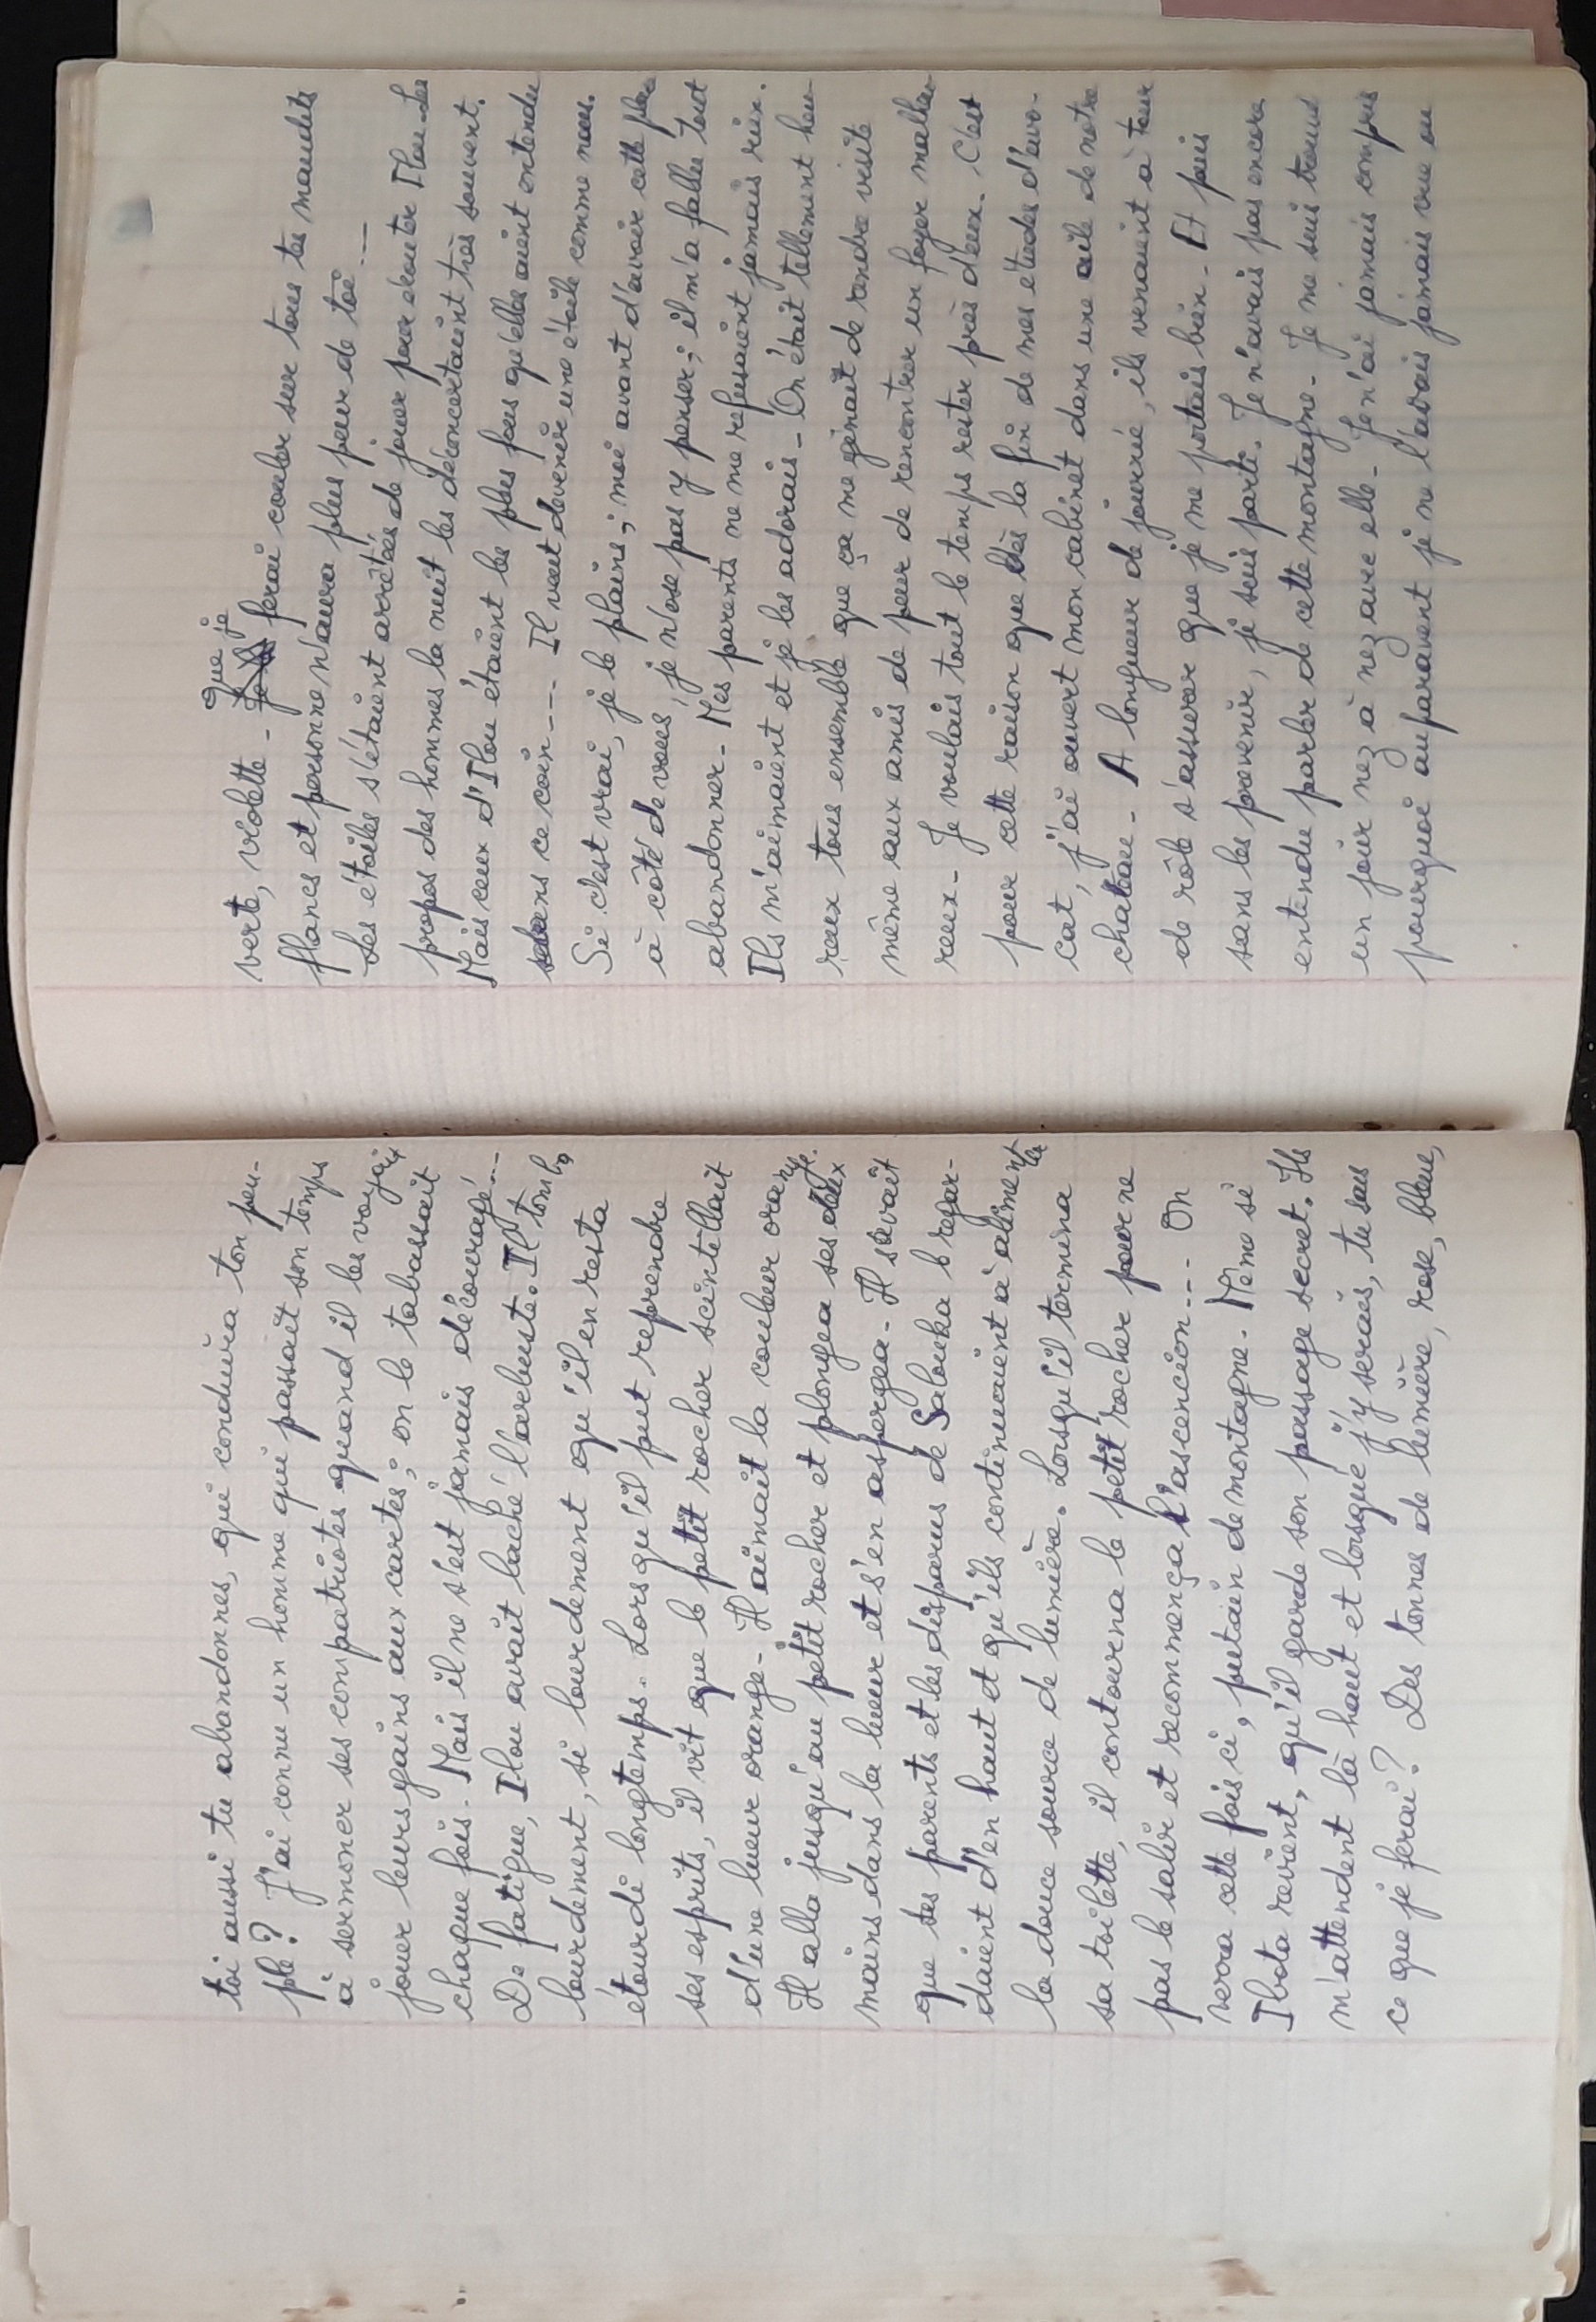 toi aussi tu abandonnes, qui conduira ton peu-
ple? J'ai connu un homme qui passait son temps
à sermoner ses compatriotes quand il les voyait
jouer leurs gains aux cartes; on le tabassait
chaque fois. Mais il ne s'est jamais découragé...
De fatigue, Ilou avait laché l'arbuste. Il tomba
lourdement, si lourdement qu'il en resta
étourdi longtemps. Lorsqu'il put reprendre
ses esprits, il vit que le petit rocher scintillait
d'une lueur orange. Il aimait la couleur orange.
Il alla jusqu'au petit rocher et plongea ses deux
mains dans la lueur et s'en aspergea. Il savait
que ses parents et les disparus de Salouka le regar-
daient d'en haut et qu'ils continuaient à alimenter
la douce source de lumière. Lorsqu'il termina
sa toilette, il contourna le petit rocher pour ne
pas le salir et recommença l'ascencion... On
verra cette fois ci, putain de montagne. Même si
Ibota revient, qu'il garde son passage secret. Ils
m'attendent là haut et lorsque j'y serais, tu sais
ce que je ferai? Des tonnes de lumière, rose, bleue,
verte, violette - que je ferai couler sur tous tes maudits
flancs et personne n'aura plus peur de toi...
Les étoiles s'étaient arrêtées de jouer pour écouter Ilou. Les
propos des hommes la nuit les déconcertaient très souvent.
Mais ceux d'Ilou étaient les plus fous qu'elles aient entendu
dans ce coin... Il veut devenir une étoile comme nous.
Si c'est vrai, je le plains; moi avant d'avoir cette place
à côté de vous, je n'ose pas y penser; il m'a fallu tout
abandonner. Mes parents ne me refusaient jamais rien.
Ils m'aimaient et je les adorais. On était tellement heu-
reux tous ensemble que ça me gênait de rendre visite
même aux amis de peur de rencontrer un foyer malheu
reux. Je voulais tout le temps rester près d'eux. C'est
pour cette raison que dès la fin de mes études d'avo-
cat, j'ai ouvert mon cabinet dans une aile de notre
chateau. A longueur de journée, ils venaient à tour
de rôle s'assurer que je me portais bien. Et puis
sans les prévenir, je suis parti. Je n'avais pas encore
entendu parler de cette montagne. Je me suis trouvé
un jour nez à nez avec elle. Je n'ai jamais compris
pourquoi auparavent je ne l'avais jamais vue ou